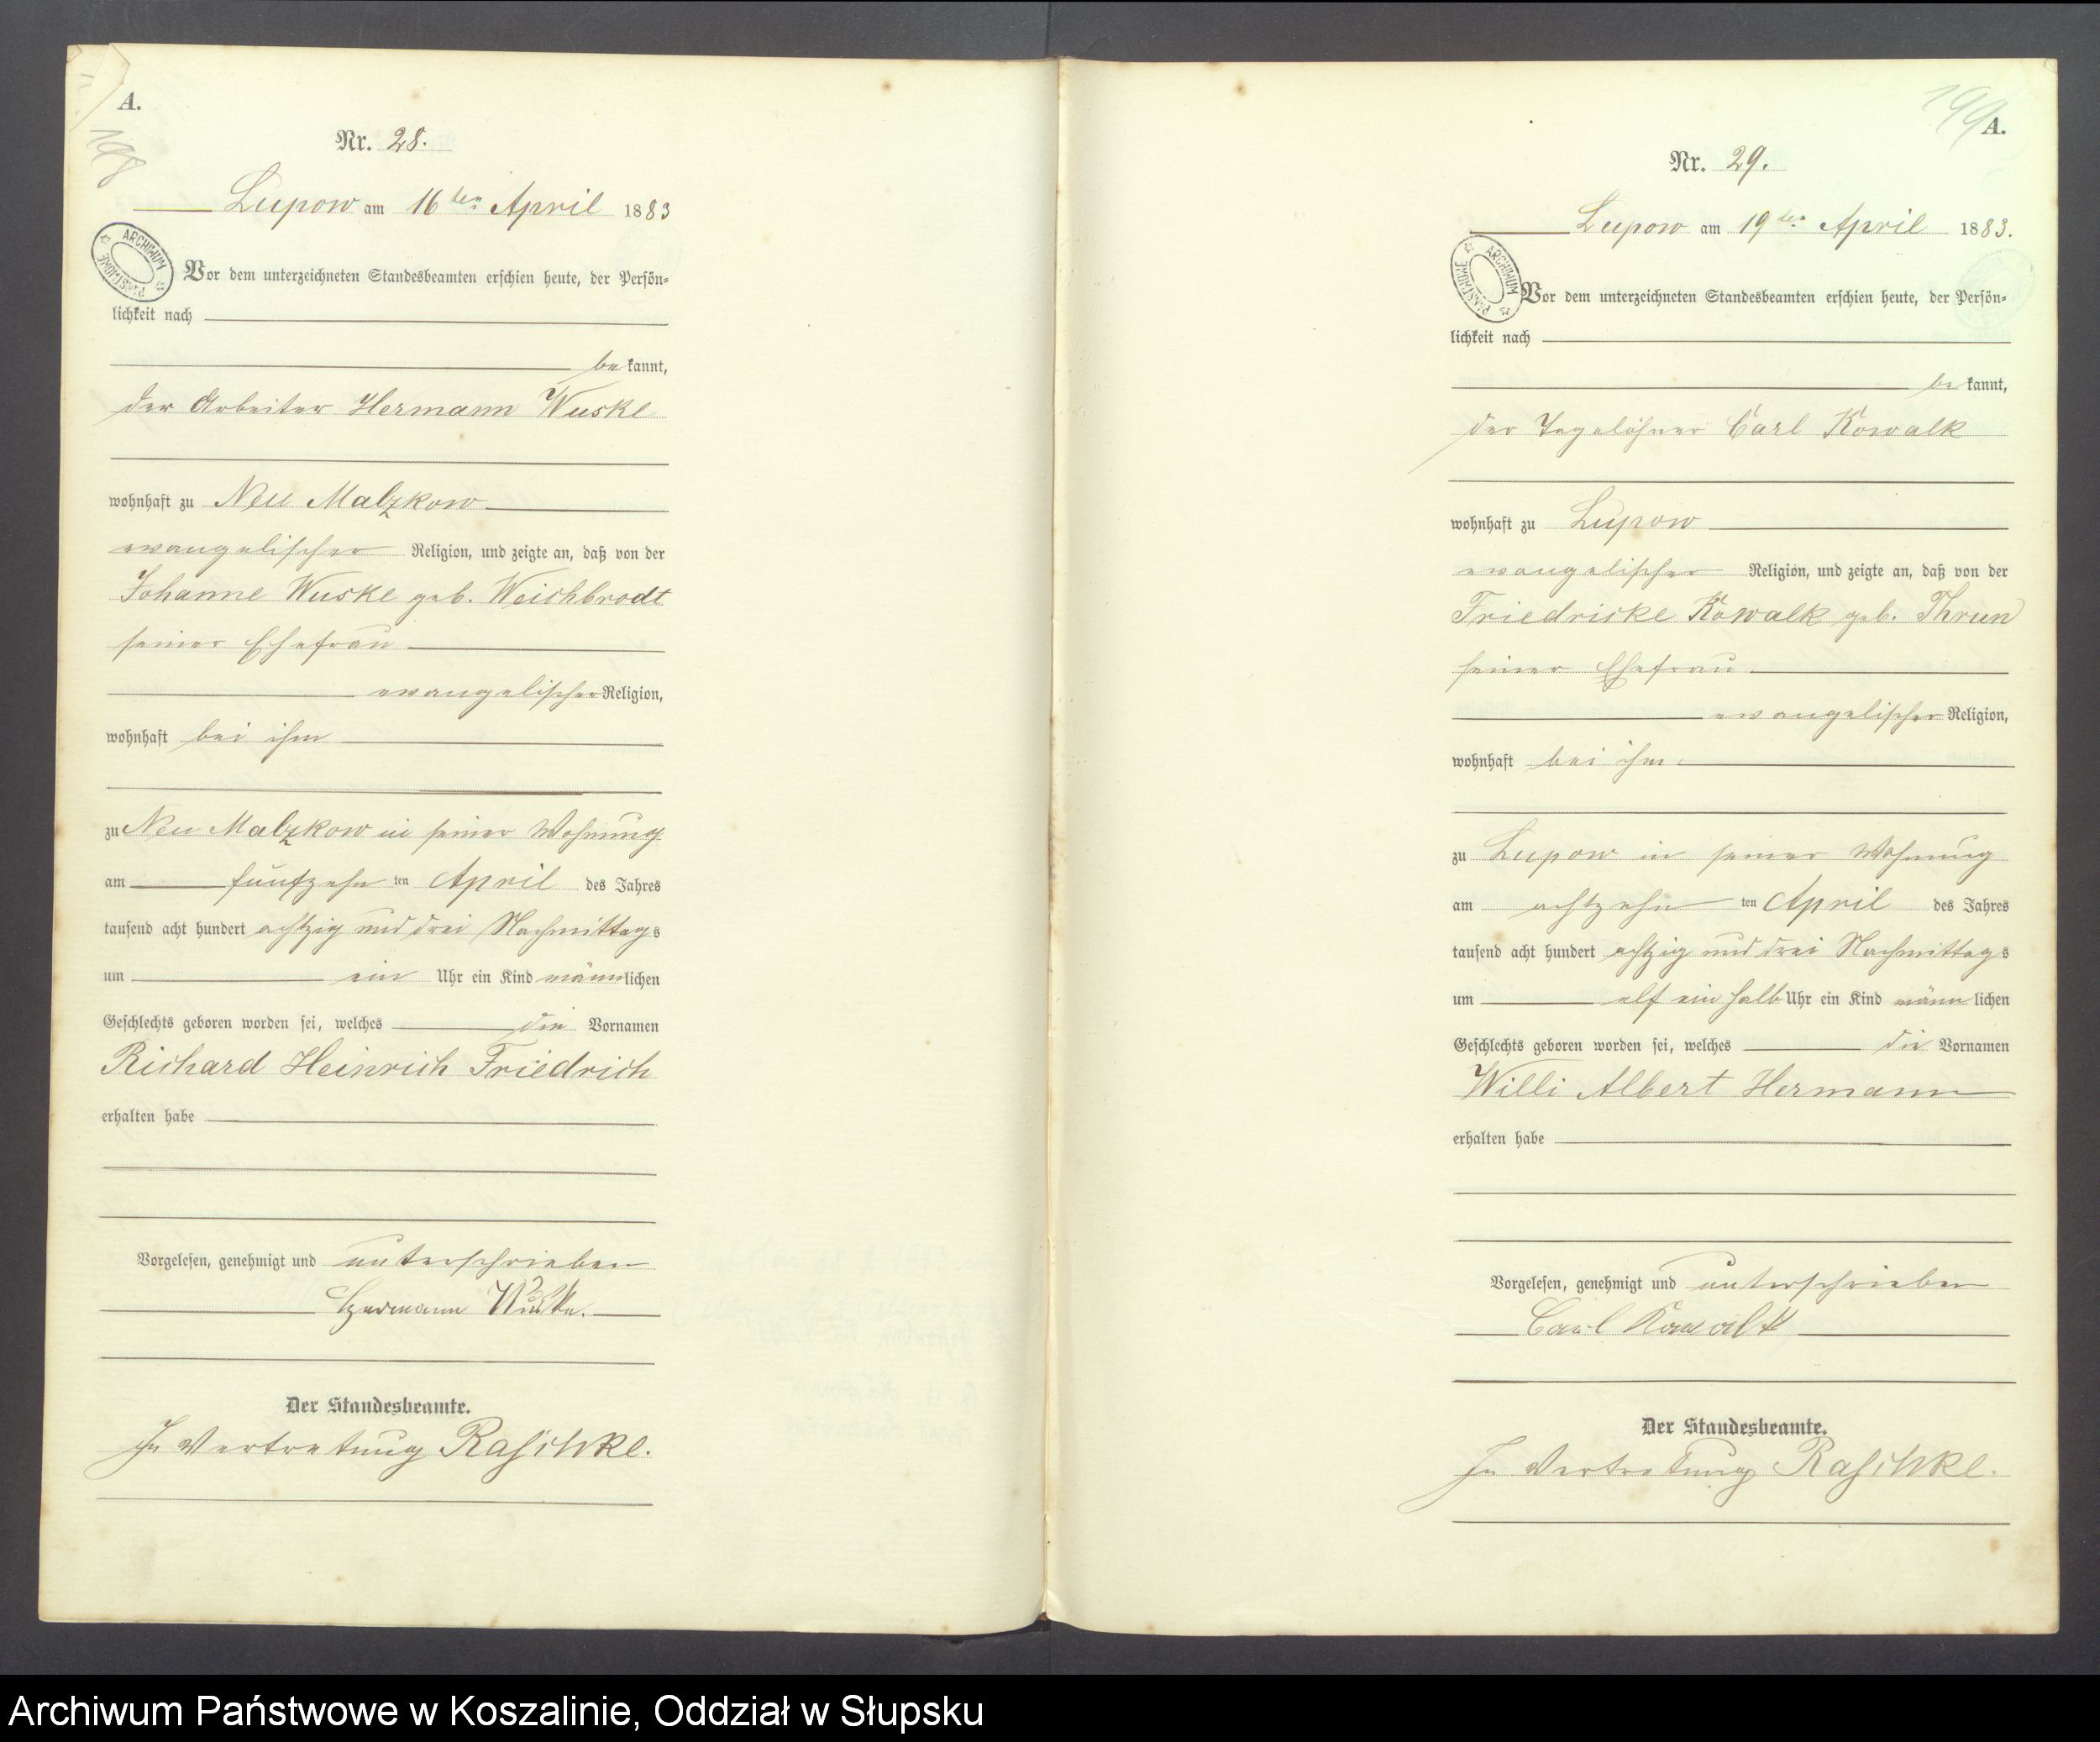 A.
198
Nr. 28.
Lupow am 16ten April 1883
ARCHIWUM PAŃSTWOWE
Vor dem unterzeichneten Standesbeamten erschien heute, der Persön-
lichkeit nach
be kannt,
der Arbeiter Hermann Wuske
wohnhaft zu Neu Malzkow
evangelischer Religion, und zeigte an, daß von der
Johanne Wuske geb. Weichbrodt
seiner Ehefrau
evangelischer Religion,
wohnhaft bei ihm
zu Neu Malzkow in seiner Wohnung
am fünfzehn ten April des Jahres
tausend acht hundert achtzig und drei Nachmittags
um ein Uhr ein Kind männlichen
Geschlechts geboren worden sei, welches die Vornamen
Richard Heinrich Friedrich
erhalten habe
Vorgelesen, genehmigt und unterschrieben
Hermann Wuske.
Der Standesbeamte.
In Vertretung Raschke.
199
A.
Nr. 29.
Lupow am 19ten April 1883.
ARCHIWUM PAŃSTWOWE
Vor dem unterzeichneten Standesbeamten erschien heute, der Persön-
lichkeit nach
be kannt,
der Tagelöhner Carl Kowalk
wohnhaft zu Lupow
evangelischer Religion, und zeigte an, daß von der
Friedricke Kowalk geb. Thrun
seiner Ehefrau
evangelischer Religion,
wohnhaft bei ihm
zu Lupow in seiner Wohnung
am achtzehn ten April des Jahres
tausend acht hundert achtzig und drei Nachmittags
um elf ein halb Uhr ein Kind männlichen
Geschlechts geboren worden sei, welches die Vornamen
Willi Albert Hermann
erhalten habe
Vorgelesen, genehmigt und unterschrieben
Carl Kowalk
Der Standesbeamte.
In Vertretung Raschke.
Archiwum Państwowe w Koszalinie, Oddział w Słupsku